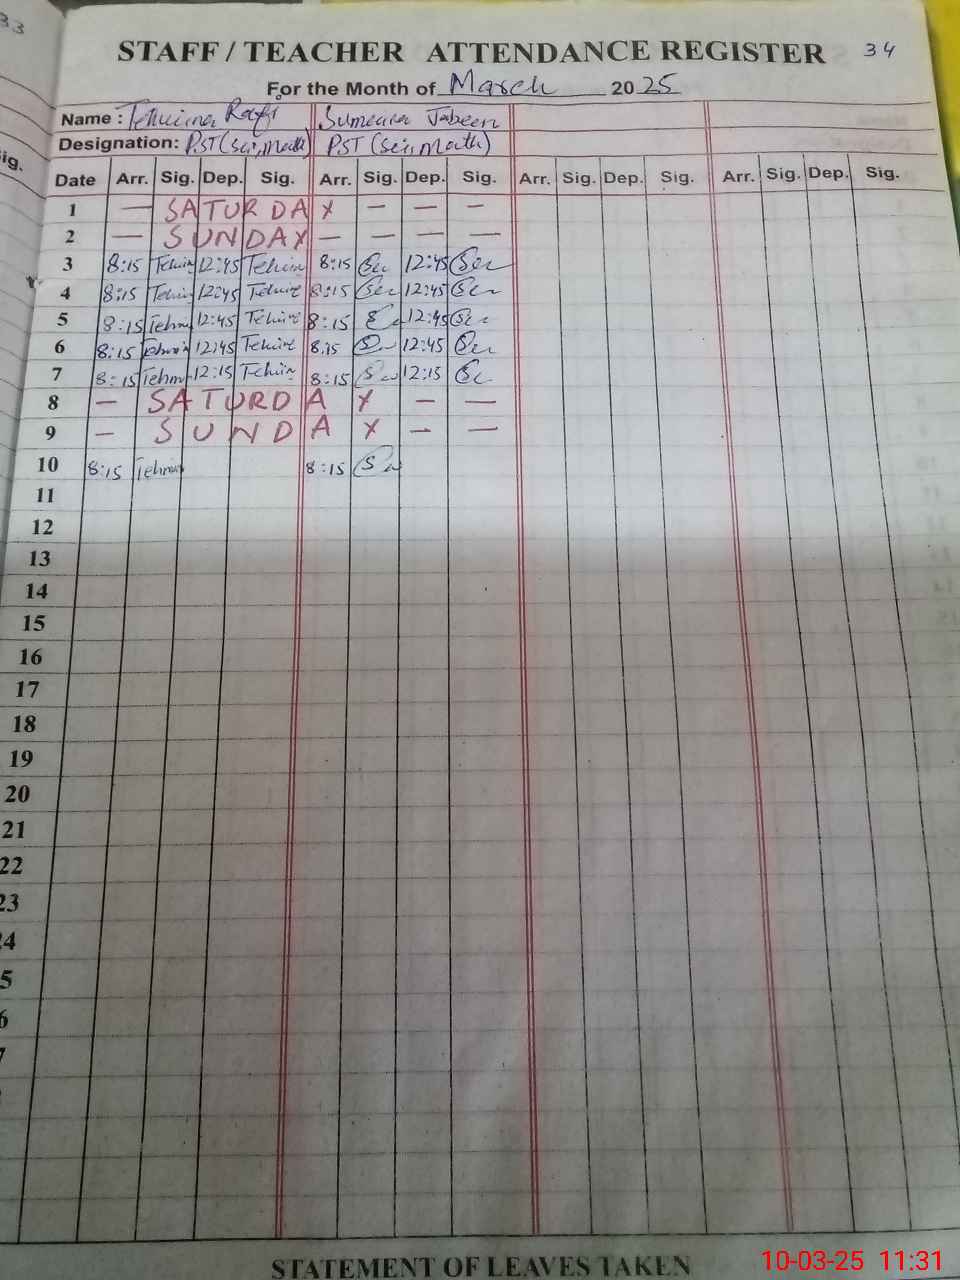 33
STAFF / TEACHER ATTENDANCE REGISTER 34
For the Month of March 2025
Name : Tehmina Rafi Sumeara Jabeen
Designation: PST (sci, Math) PST (sci, Math)
Sig.
Date Arr. Sig. Dep. Sig. Arr. Sig. Dep. Sig. Arr. Sig. Dep. Sig. Arr. Sig. Dep. Sig.
1 — SATURDAY — — —
2 — SUNDAY — — — —
3 8:15 12:45 8:15 12:45
4 8:15 12:45 8:15 12:45
5 8:15 12:45 8:15 12:45
6 8:15 12:45 8:15 12:45
7 8:15 12:15 8:15 12:15
8 — SATURDAY — —
9 — SUNDAY — —
10 8:15 8:15
11
12
13
14
15
16
17
18
19
20
21
22
23
24
5
6
7
STATEMENT OF LEAVES TAKEN
10-03-25 11:31